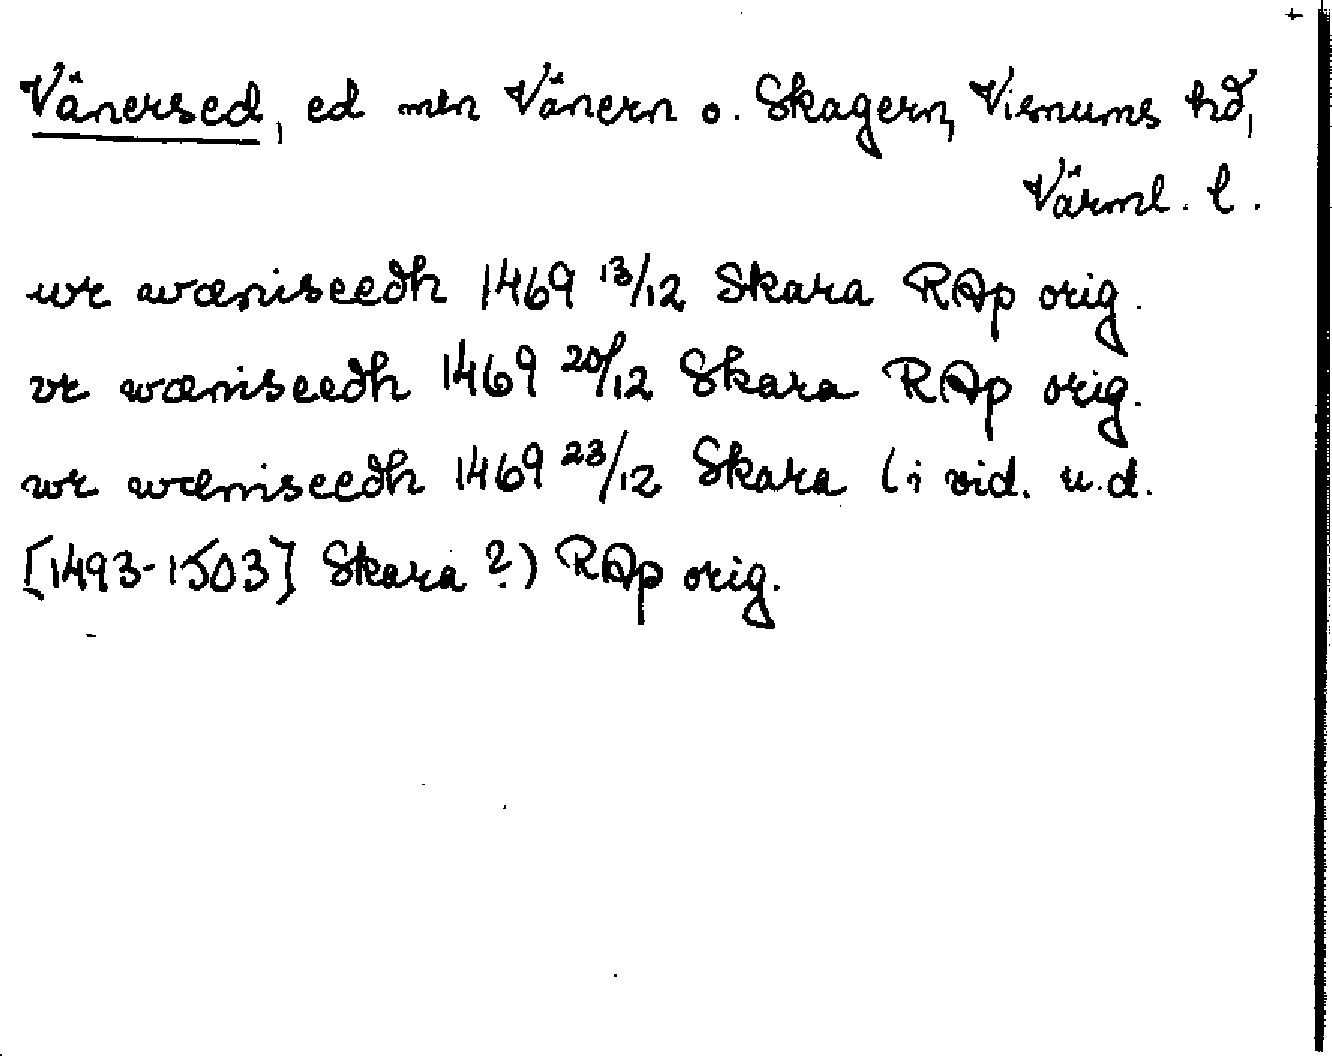 Vänersed, ed mln Vänern o. Skagern, Visnums hd,
Värml. l.
wr wæniseedh 1469 13/12 Skara RAp orig.
vr wæniseedh 1469 20/12 Skara RAp orig.
wr wæniseedh 1469 23/12 Skara (i vid. u.d.
[1493-1503] Skara?) RAp orig.